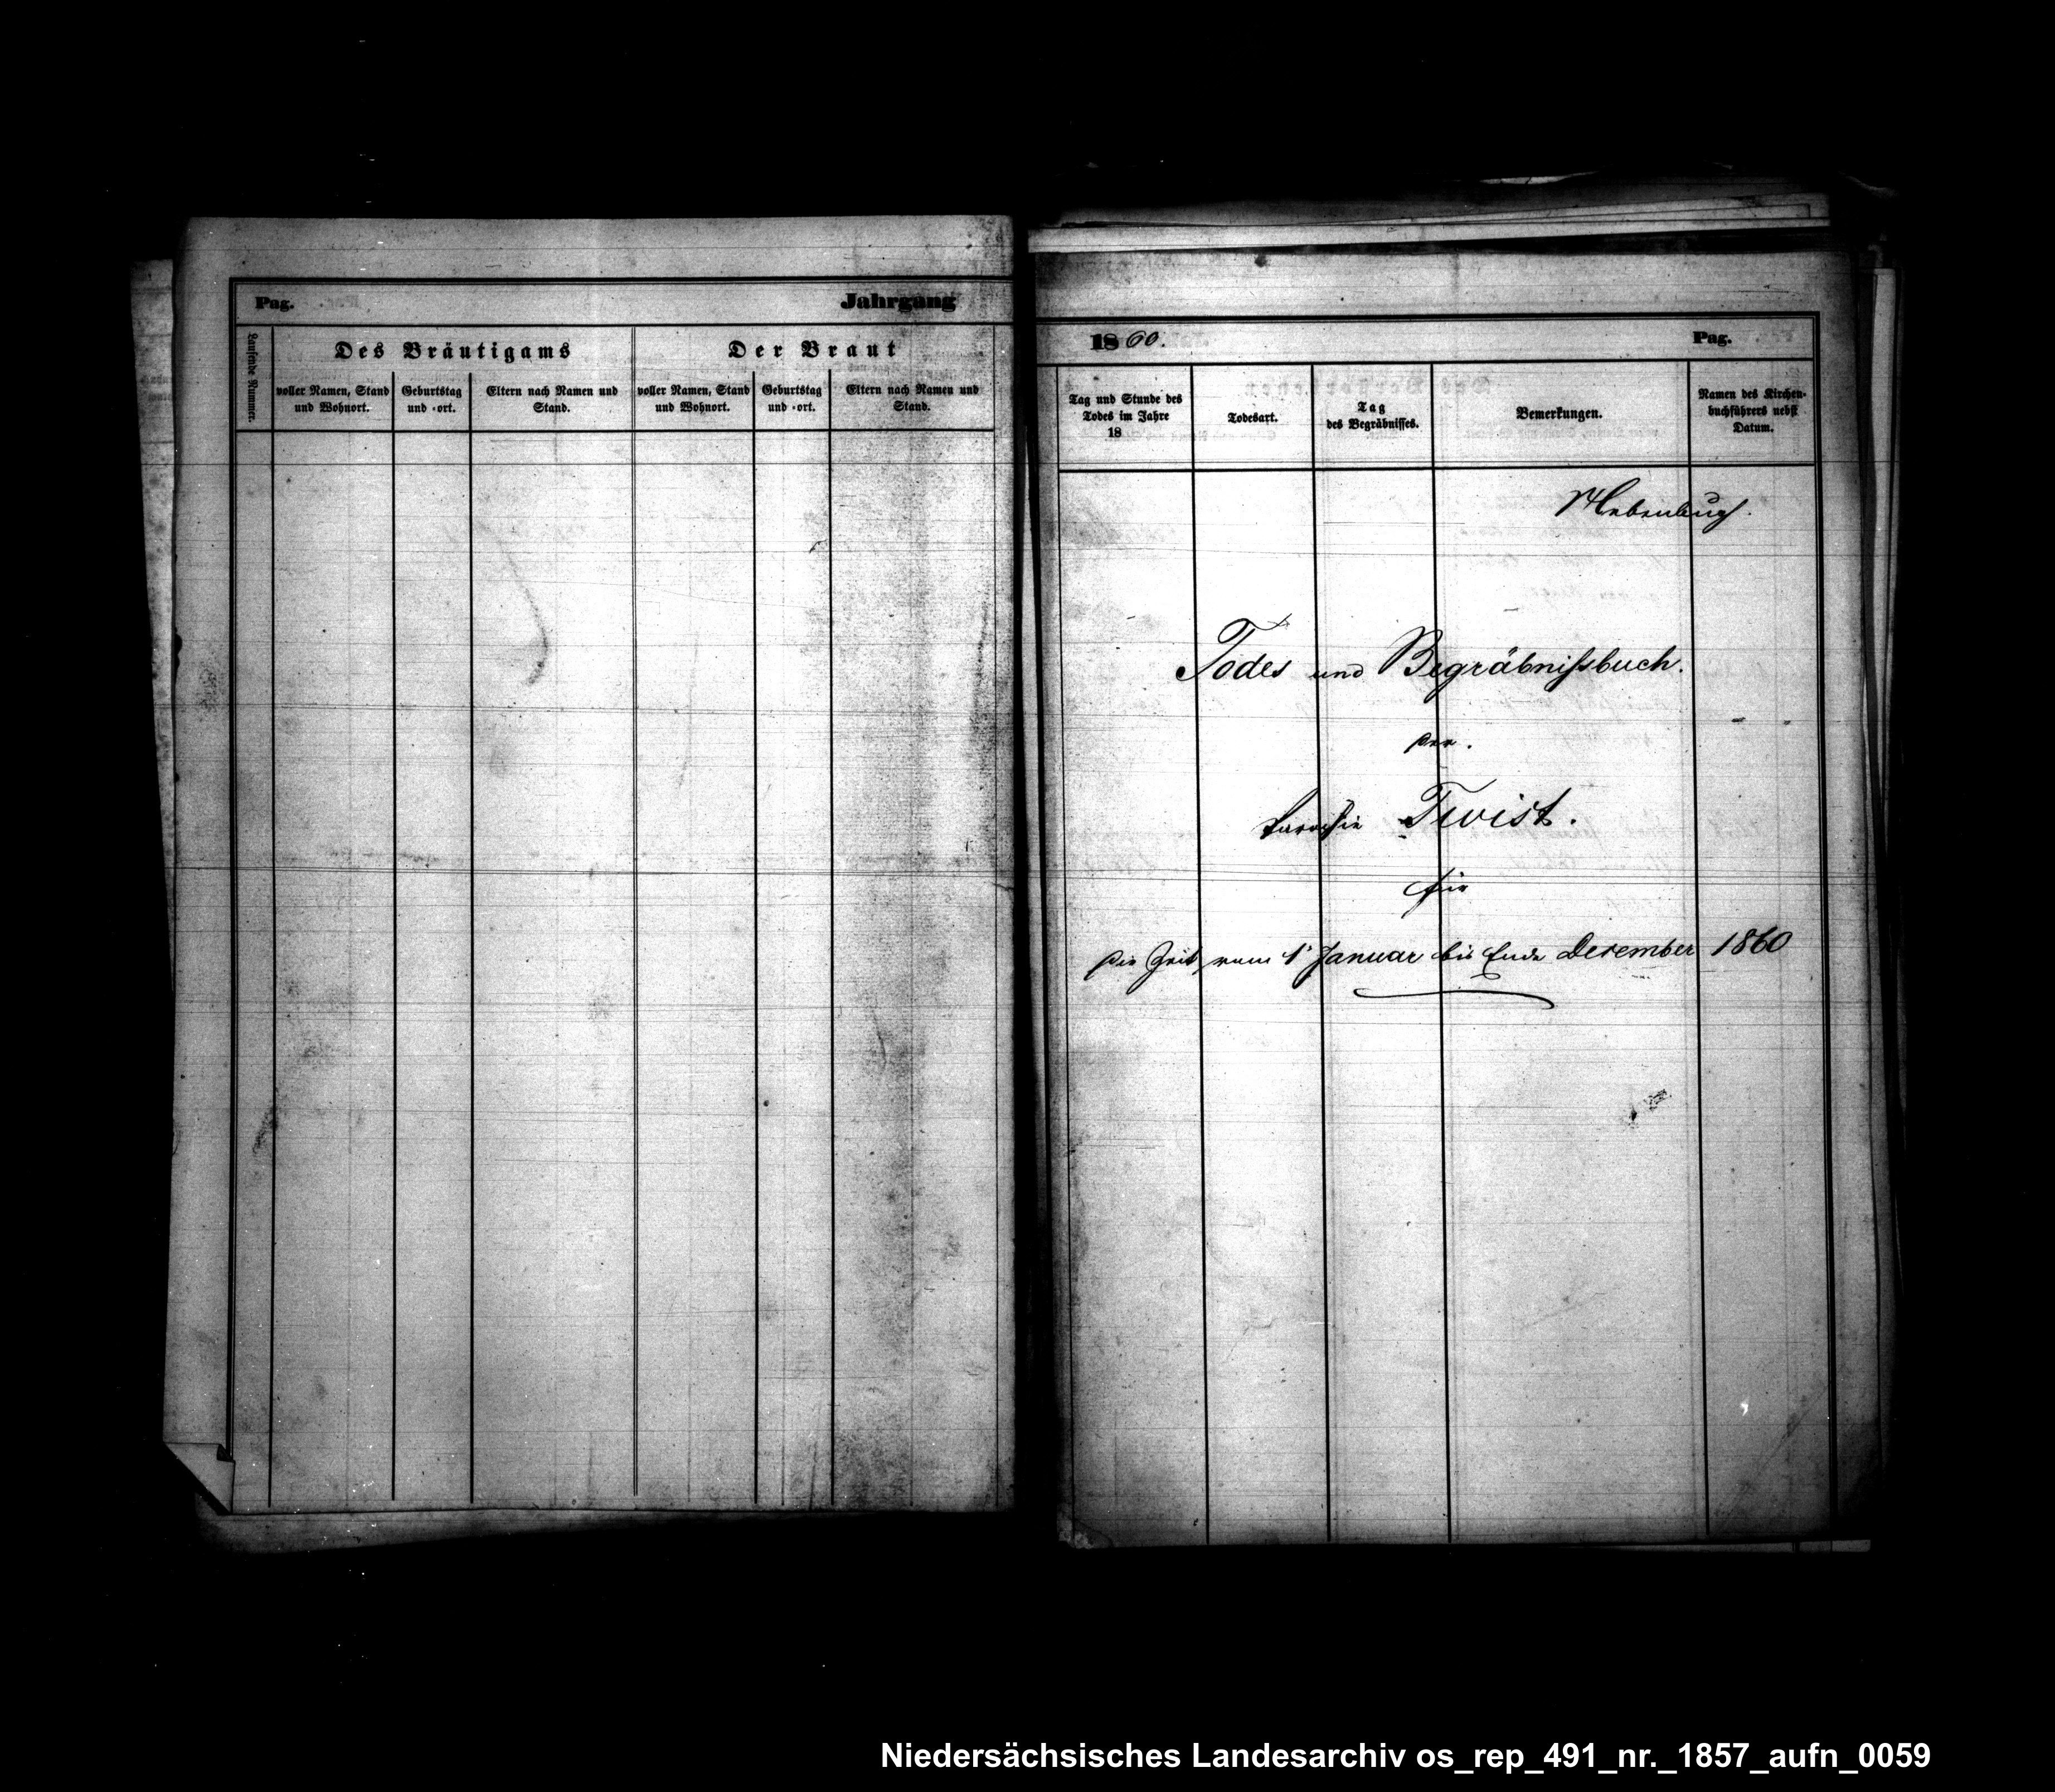 Pag.
Jahrgang
Laufende Nummer.
Des Bräutigams
Der Braut
voller Namen, Stand
und Wohnort.
Geburtstag
und -ort.
Eltern nach Namen und
Stand.
voller Namen, Stand
und Wohnort.
Geburtstag
und -ort.
Eltern nach Namen und
Stand.
1860.
Pag.
Tag und Stunde des
Todes im Jahre
18
Todesart.
Tag
des Begräbnisses.
Bemerkungen.
Namen des Kirchen-
buchführers nebst
Datum.
Nebenbuch.
Todes und Begräbnißbuch.
der.
Parochie Twist.
für
die Zeit vom 1' Januar bis Ende December 1860
Niedersächsisches Landesarchiv os_rep_491_nr._1857_aufn_0059